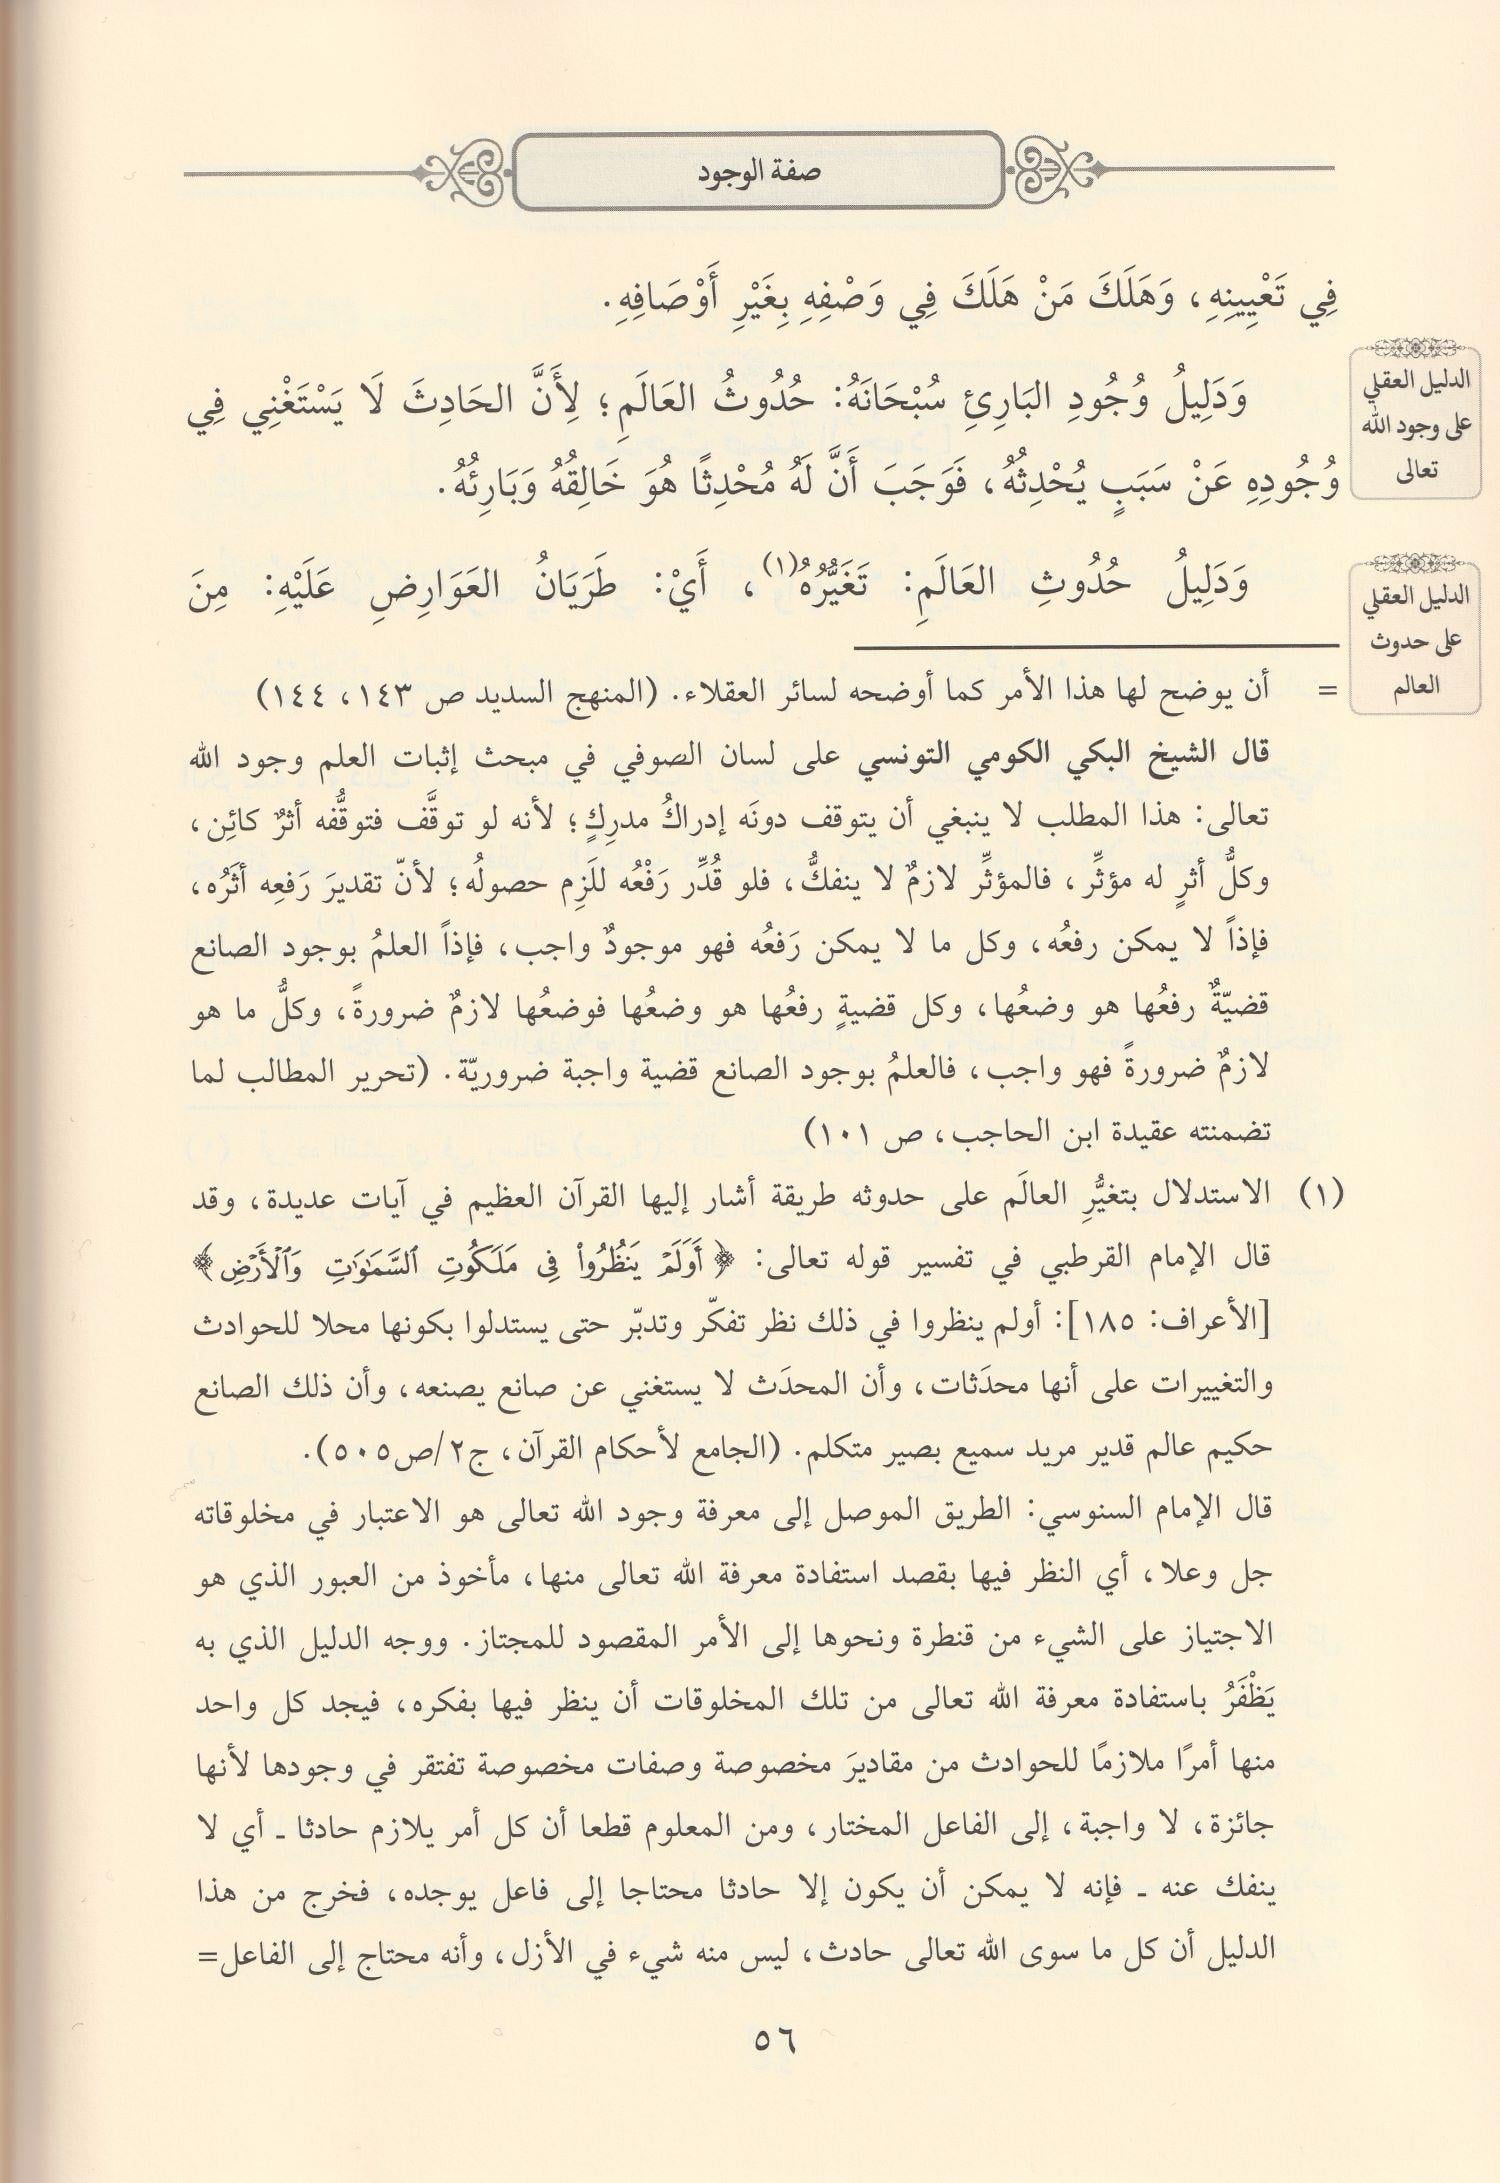 صفة الوجود
فِي تَعْيِينِهِ، وَهَلَكَ مَنْ هَلَكَ فِي وَصْفِهِ بِغَيْرِ أَوْصَافِهِ.
الدليل العقلي
على وجود الله
تعالى
وَدَلِيلُ وُجُودِ البَارِئِ سُبْحَانَهُ: حُدُوثُ العَالَمِ؛ لِأَنَّ الحَادِثَ لَا يَسْتَغْنِي فِي
وُجُودِهِ عَنْ سَبَبٍ يُحْدِثُهُ، فَوَجَبَ أَنَّ لَهُ مُحْدِثًا هُوَ خَالِقُهُ وَبَارِئُهُ.
الدليل العقلي
على حدوث
العالم
وَدَلِيلُ حُدُوثِ العَالَمِ: تَغَيُّرُهُ(١)، أَيْ: طَرَيَانُ العَوَارِضِ عَلَيْهِ: مِنَ
= أن يوضح لها هذا الأمر كما أوضحه لسائر العقلاء. (المنهج السديد ص ١٤٣، ١٤٤)
قال الشيخ البكي الكومي التونسي على لسان الصوفي في مبحث إثبات العلم وجود الله
تعالى: هذا المطلب لا ينبغي أن يتوقف دونَه إدراكُ مدرِكٍ؛ لأنه لو توقَّف فتوقُّفه أثرٌ كائِن،
وكلُّ أثرٍ له مؤثِّر، فالمؤثِّر لازمٌ لا ينفكُّ، فلو قُدِّر رَفْعُه للَزِم حصولُه؛ لأنّ تقديرَ رَفعِه أثَرُه،
فإذاً لا يمكن رفعُه، وكل ما لا يمكن رَفعُه فهو موجودٌ واجب، فإذاً العلمُ بوجود الصانع
قضيّةٌ رفعُها هو وضعُها، وكل قضيةٍ رفعُها هو وضعُها فوضعُها لازمٌ ضرورةً، وكلُّ ما هو
لازمٌ ضرورةً فهو واجب، فالعلمُ بوجود الصانع قضية واجبة ضروريّة. (تحرير المطالب لما
تضمنته عقيدة ابن الحاجب، ص ١٠١)
(١) الاستدلال بتغيُّرِ العالَم على حدوثه طريقة أشار إليها القرآن العظيم في آيات عديدة، وقد
قال الإمام القرطبي في تفسير قوله تعالى: ﴿أَوَلَمْ يَنظُرُواْ فِى مَلَكُوتِ ٱلسَّمَٰوَٰتِ وَٱلْأَرْضِ﴾
[الأعراف: ١٨٥]: أولم ينظروا في ذلك نظر تفكّر وتدبّر حتى يستدلوا بكونها محلا للحوادث
والتغييرات على أنها محدَثات، وأن المحدَث لا يستغني عن صانع يصنعه، وأن ذلك الصانع
حكيم عالم قدير مريد سميع بصير متكلم. (الجامع لأحكام القرآن، ج٢/ص٥٠٥).
قال الإمام السنوسي: الطريق الموصل إلى معرفة وجود الله تعالى هو الاعتبار في مخلوقاته
جل وعلا، أي النظر فيها بقصد استفادة معرفة الله تعالى منها، مأخوذ من العبور الذي هو
الاجتياز على الشيء من قنطرة ونحوها إلى الأمر المقصود للمجتاز. ووجه الدليل الذي به
يَظْفَرُ باستفادة معرفة الله تعالى من تلك المخلوقات أن ينظر فيها بفكره، فيجد كل واحد
منها أمرًا ملازمًا للحوادث من مقاديرَ مخصوصة وصفات مخصوصة تفتقر في وجودها لأنها
جائزة، لا واجبة، إلى الفاعل المختار، ومن المعلوم قطعا أن كل أمر يلازم حادثا ـ أي لا
ينفك عنه ـ فإنه لا يمكن أن يكون إلا حادثا محتاجا إلى فاعل يوجده، فخرج من هذا
الدليل أن كل ما سوى الله تعالى حادث، ليس منه شيء في الأزل، وأنه محتاج إلى الفاعل=
٥٦